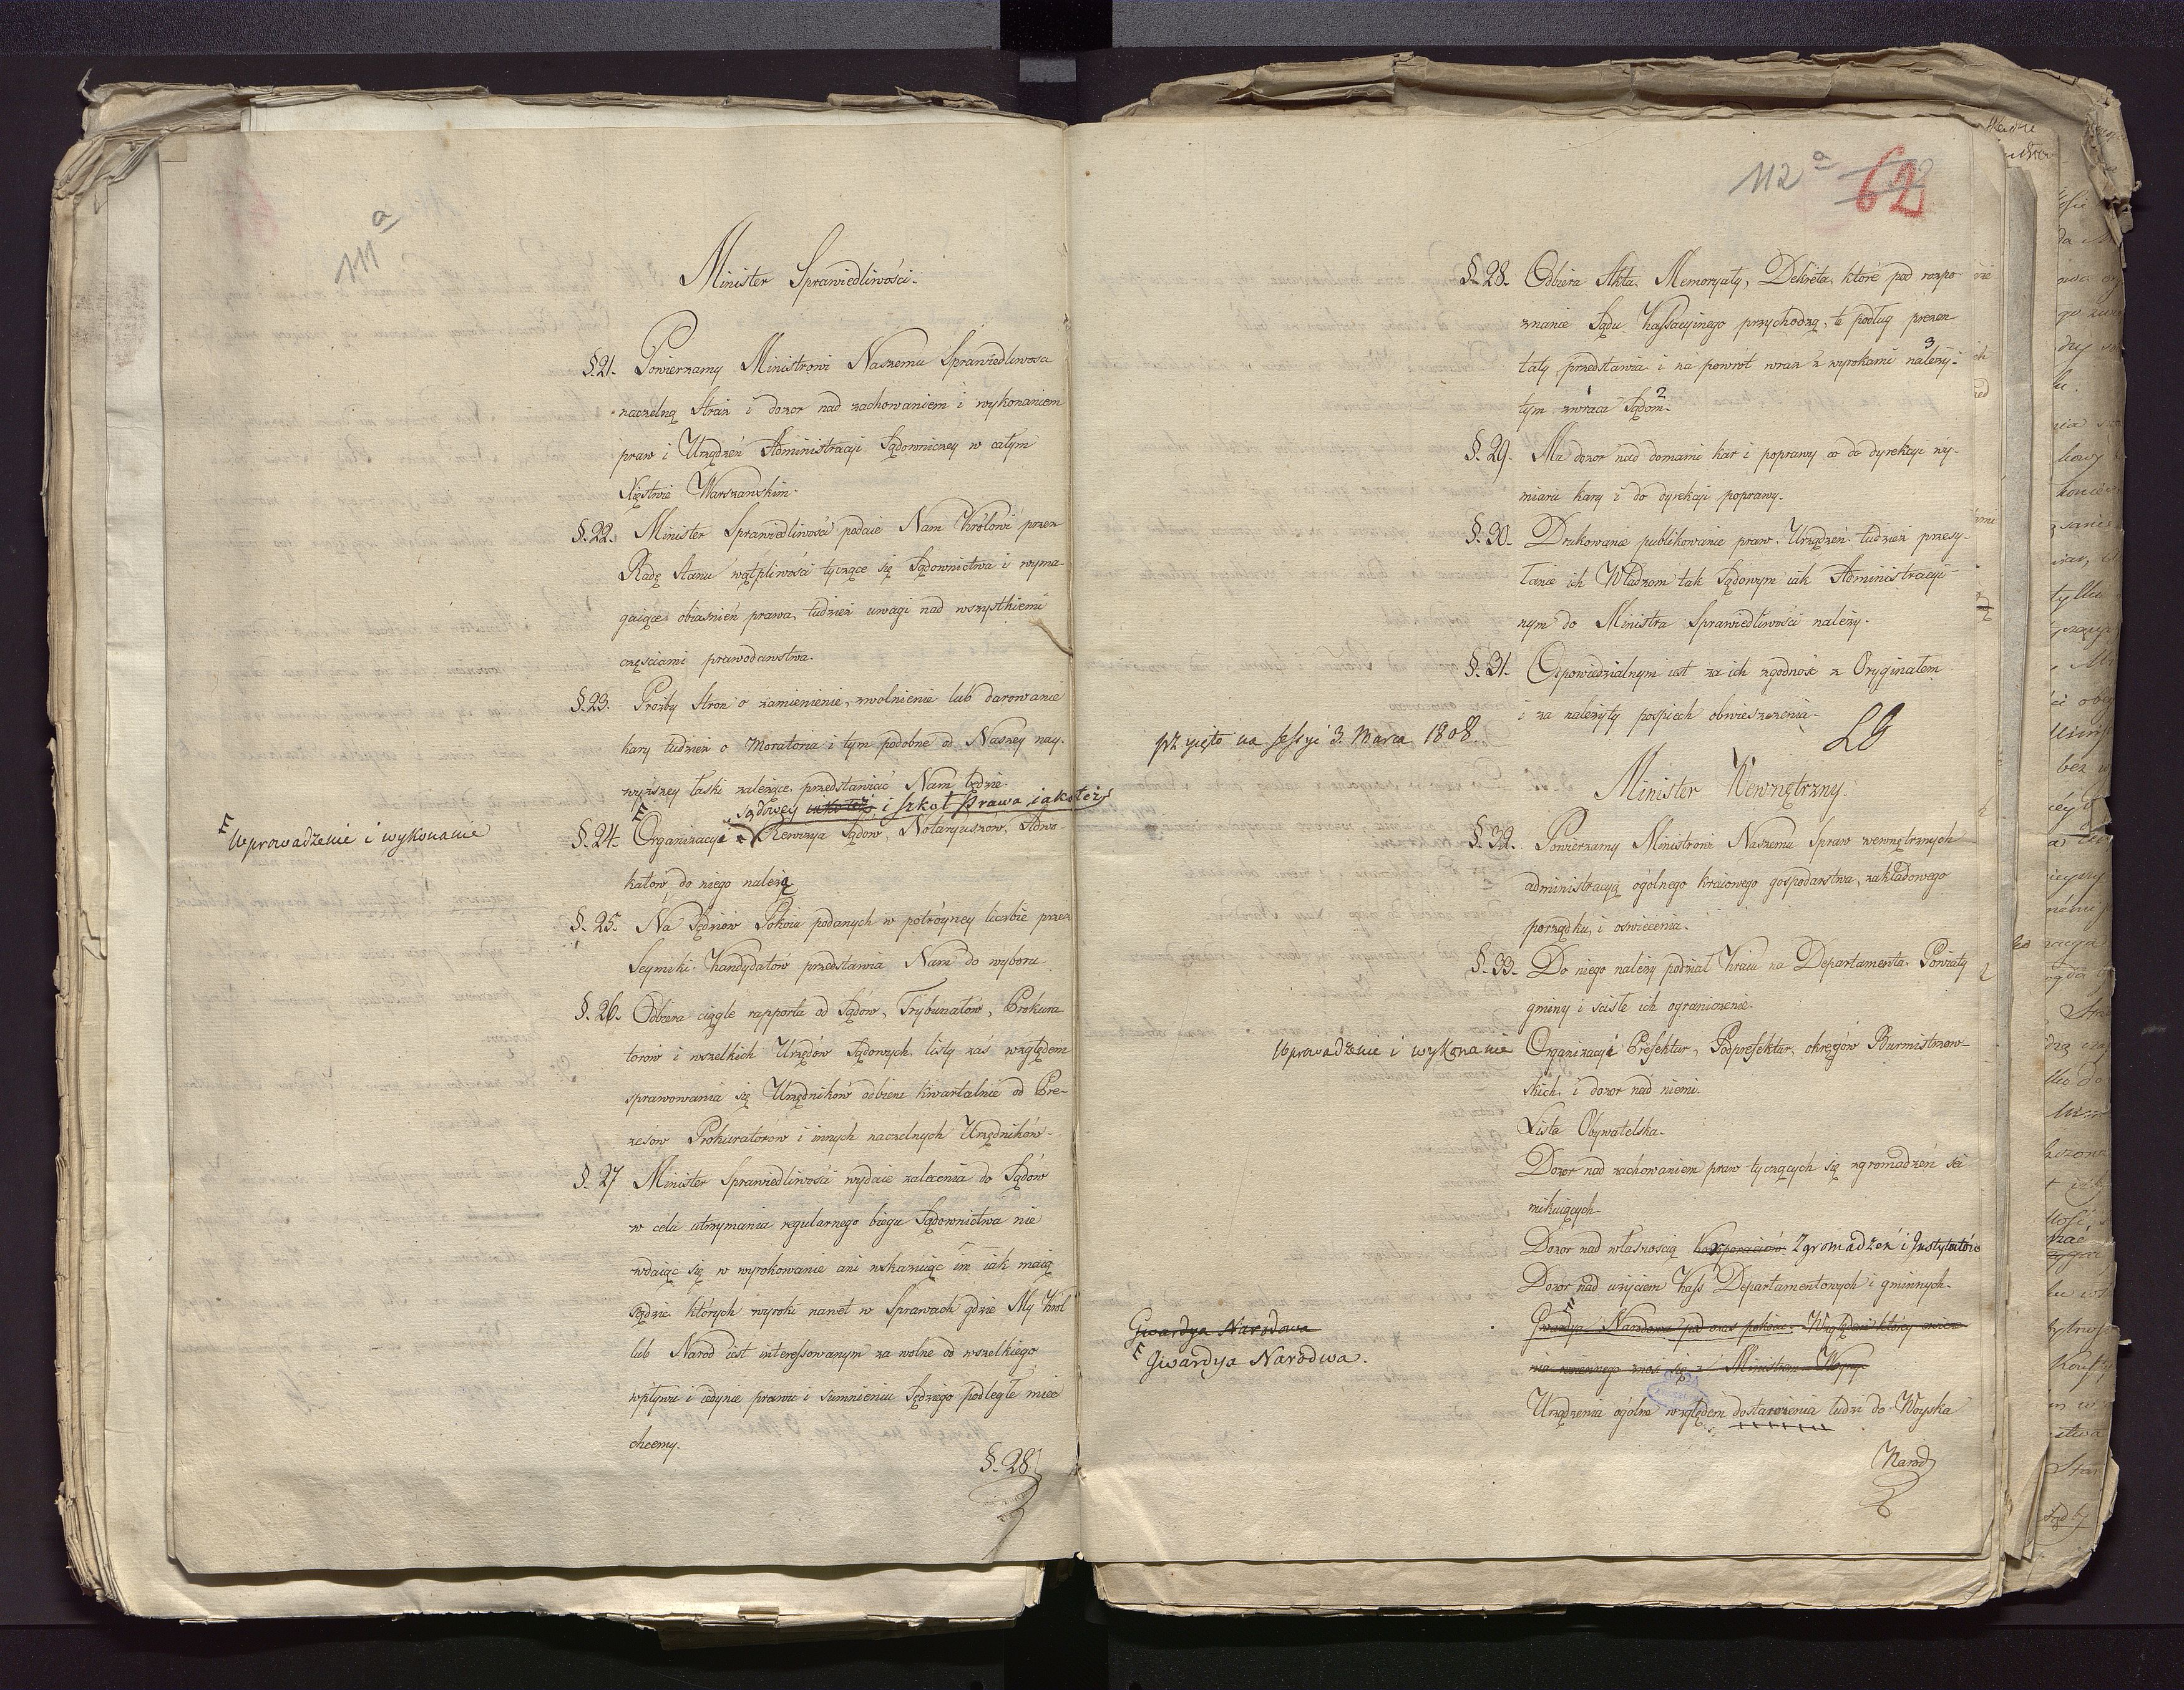 111 a
Minister Sprawiedliwości.
§. 21. Powierzamy Ministrowi Naszemu Sprawiedliwości
naczelną Straż i dozor nad zachowaniem i wykonaniem
praw i Urządzeń Administracyi Sądowniczey w całym
Xięstwie Warszawskim.
§. 22. Minister Sprawiedliwości podaie Nam Królowi przez
Radę Stanu wątpliwości tyczące się Sądownictwa i wyma-
gaiące obiaśnień prawa, tudzież uwagi nad wszystkiemi
częściami prawodawstwa.
§. 23. Proźby Stron o zamienienie, zwolnienie lub darowanie
kary tudzież o Moratoria i tym podobne od Naszey nay-
wyższey łaski zależące, przedstawiać Nam będzie.
Sądowey iako też i szkół prawa iako też
F Wprowadzenie i wykonanie
§. 24. F Organizacyi Rewizya Sądów, Notaryuszów, Adwo-
katów, do niego należą
§. 25. Na Sędziów Pokoiu podanych w potróyney liczbie przez
Seymiki Kandydatów przedstawia Nam do wyboru.
§. 26. Odbiera ciągle rapporta od Sądów, Trybunałów, Prokura
torów i wszelkich Urzędów Sądowych, listy zaś względem
sprawowania się Urzędników odbiera kwartalnie od Pre-
zesów Prokuratorów i innych naczelnych Urzędników.
§. 27 Minister Sprawiedliwości wydaie zalecenia do Sądów
w celu utrzymania regularnego biegu Sądownictwa nie
wdaiąc się w wyrokowanie ani wskazuiąc im iak maią
sądzić których wyroki nawet w Sprawach gdzie My Król
lub Naród iest interessowanym za wolne od wszelkiego
wpływu i iedynie prawu i sumnieniu Sędziego podległe mieć
chcemy.
§. 28.
112 a 62
§. 28. Odbiera Akta, Memoryały, Dekreta, które pod rozpo-
znanie Sądu Kassacyinego przychodzą, te podług prezen
taty przedstawia i na powrót wraz z wyrokami należy- 3
tym zwraca Sądom. 2
§. 29. Ma dozor nad domami kar i poprawy co do dyrekcyi wy-
miaru kary i do dyrekcyi poprawy.
§. 30. Drukowanie publikowanie praw, Urządzeń tudzież przesy-
łanie ich Władzom tak Sądowym iak Administracyi
nym do Ministra Sprawiedliwości należy.
§. 31. Odpowiedzialnym iest za ich zgodność z Oryginałem
i za należyty pospiech obwieszczenia.
przyięto na Sessyi 3. Marca 1808. LG
Minister Wewnętrzny.
§. 32. Powierzamy Ministrowi Naszemu Spraw wewnętrznych
administracyą ogólnego kraiowego gospodarstwa, zakładowego
porządku, i oświecenia.
§. 33. Do niego należy podział Kraiu na Departamenta, Powiaty
gminy i ścisłe ich ograniczenie.
Wprowadzenie i wykonanie Organizacyi Prefektur, Podprefektur, okręgów Burmistrzow-
skich, i dozor nad niemi.
Lista Obywatelska.
Dozor nad zachowaniem praw tyczących się zgromadzeń sei
mikuiących.
Dozor nad własnością Korporaciów Zgromadzeń i Instytutów
Dozor nad użyciem Kass Departamentowych i gminnych.
Gwardya Narodowa
F
Gwardya Narodowa pod czas pokoiu. Względem którey
woiennego znosi się z Ministrem Woyny
F Gwardya Narodwa.
Urządzenia ogólne względem dostarczenia ludzi do Woyska
Narod